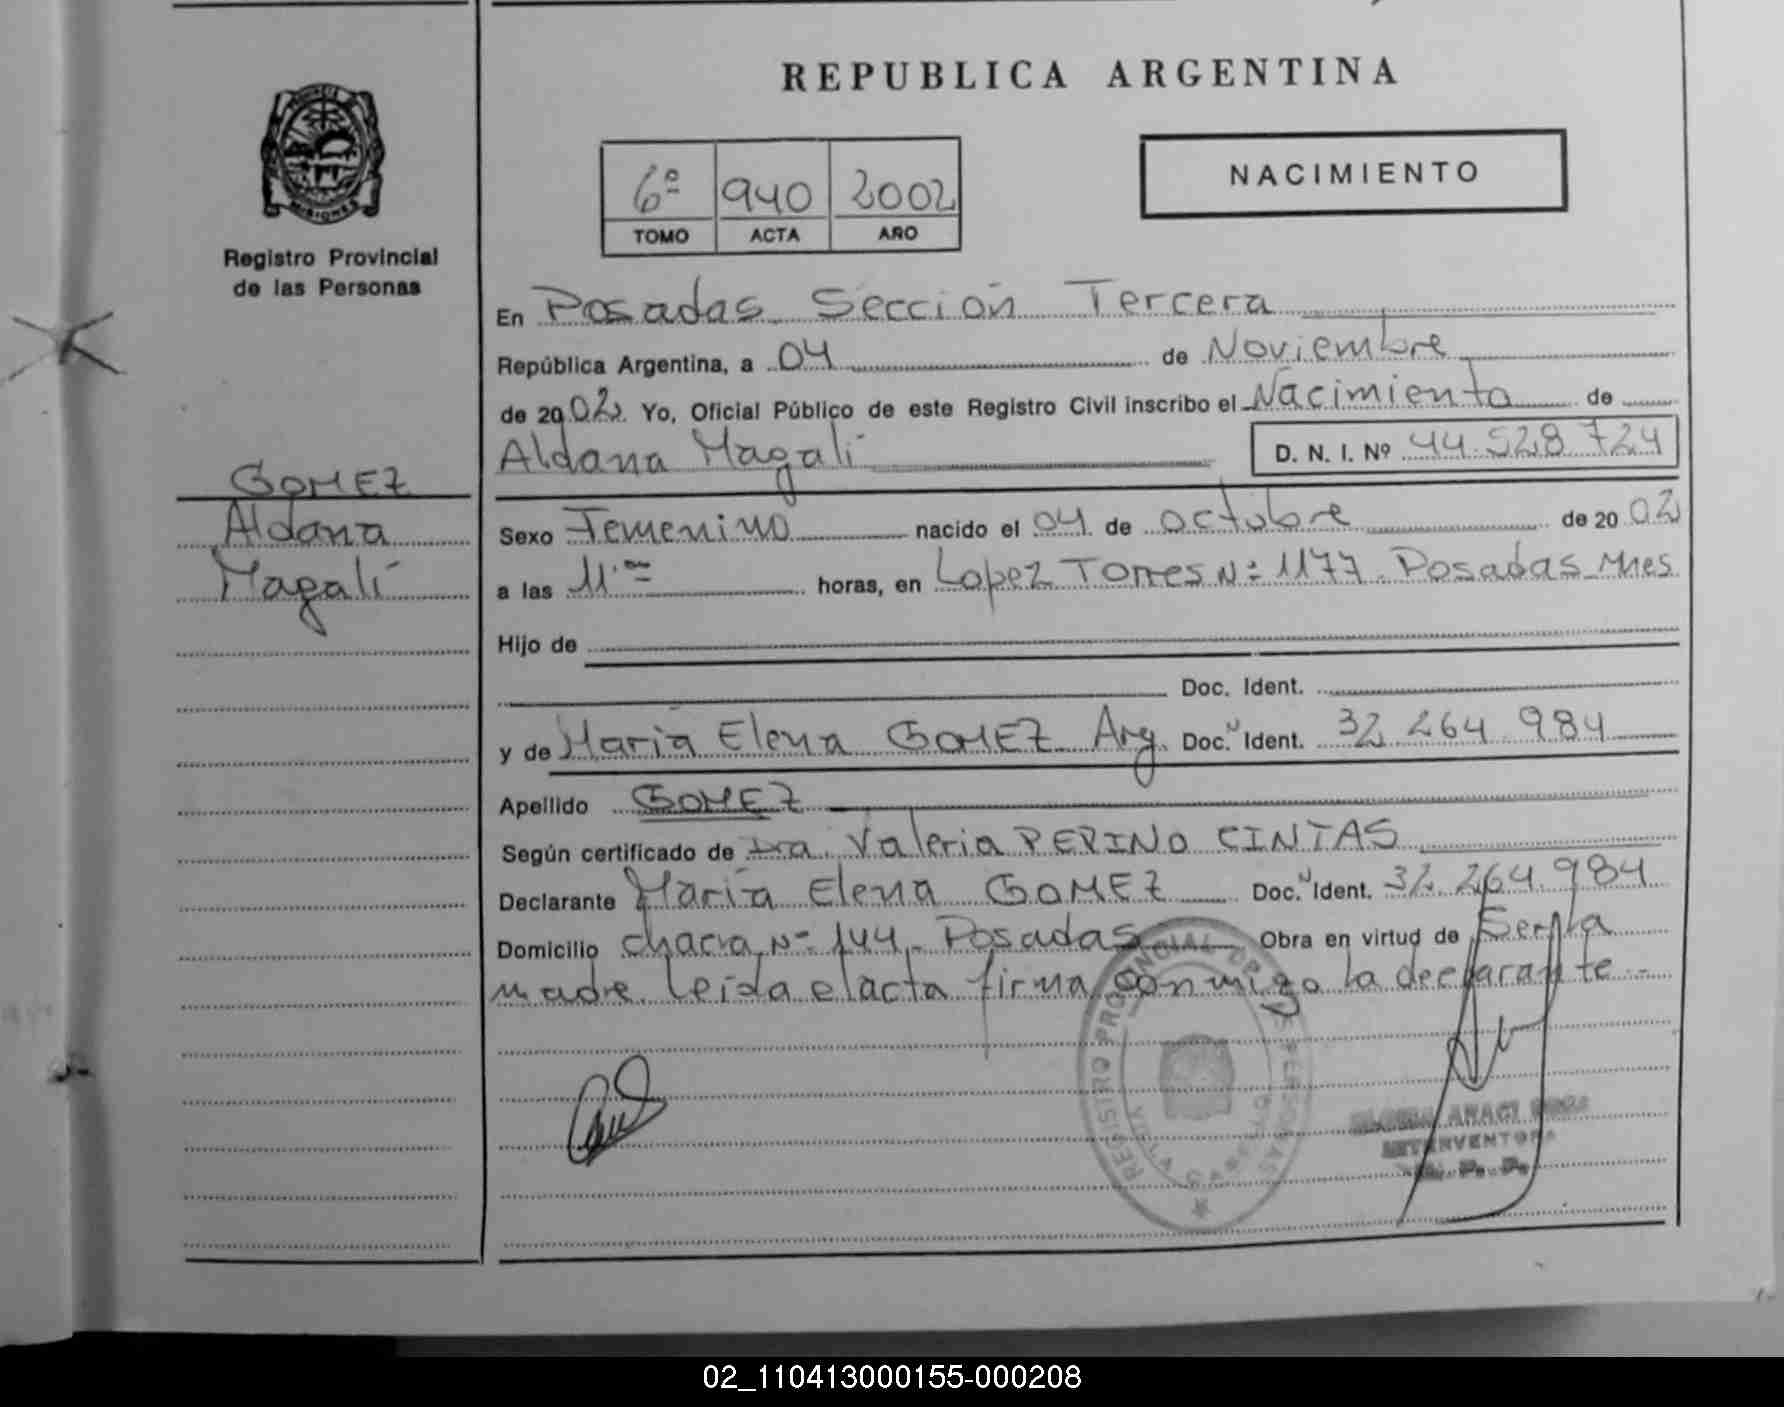 REPUBLICA ARGENTINA
PROVINCIA DE
MISIONES
Registro Provincial
de las Personas
6º 940 2002
TOMO ACTA AÑO
NACIMIENTO
En Posadas Sección Tercera
República Argentina, a 04 de Noviembre
de 2002. Yo, Oficial Público de este Registro Civil inscribo el Nacimiento de
Aldana Magalí D. N. I. Nº 44.528.724
GOMEZ
Aldana
Magalí
Sexo Femenino nacido el 04 de octubre de 2002
a las 11 horas, en Lopez Torres Nº 1177. Posadas Mnes
Hijo de
Doc. Ident.
y de María Elena GOMEZ Arg. Doc. N Ident. 32.264.984
Apellido GOMEZ
Según certificado de Dra. Valeria PERINO CINTAS
Declarante María Elena GOMEZ Doc. N Ident. 32.264.984
Domicilio chacra Nº 144. Posadas Obra en virtud de Ser la
madre. Leída el acta firma conmigo la declarante.-
REGISTRO PROVINCIAL DE LAS PERSONAS
VILLA CABELLO
INTERVENTORA
R. P. P.
02_110413000155-000208